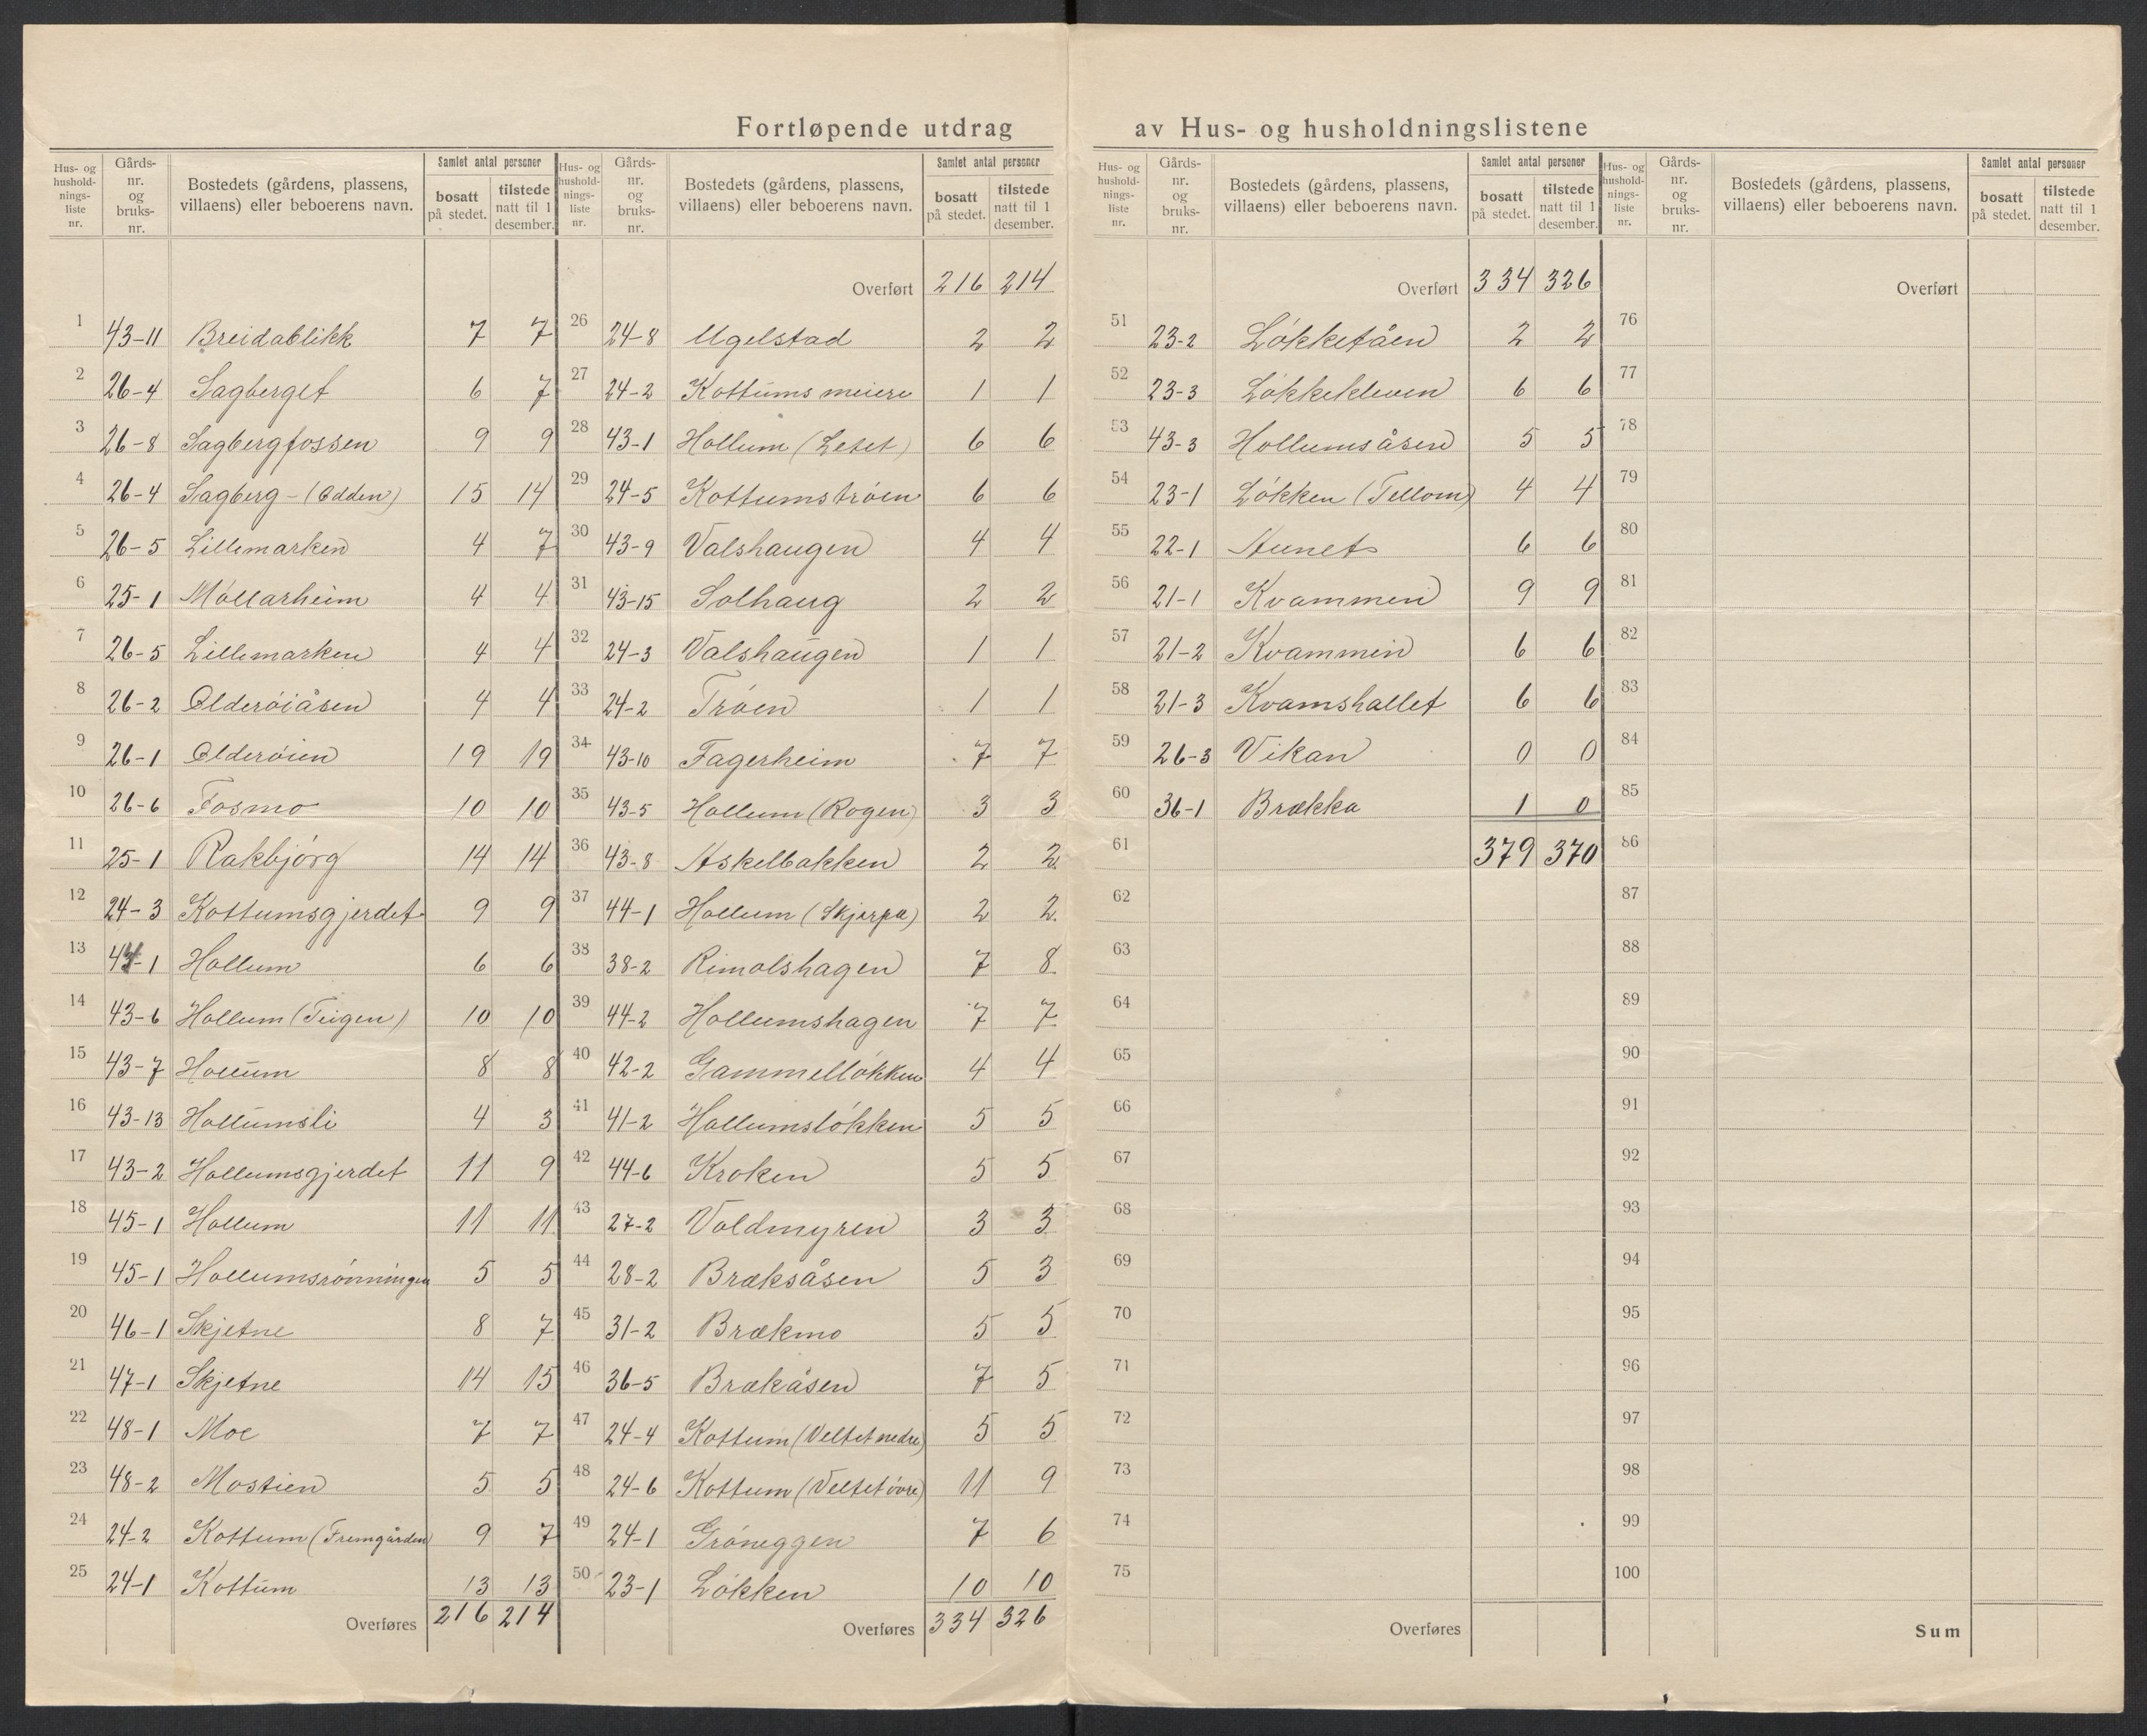 Fortløpende utdrag av Hus- og husholdningslistene
Hus- og husholdningsliste nr. | Gårds-nr. og bruks-nr. | Bostedets (gårdens, plassens, villaens) eller beboerens navn. | Samlet antal personer: bosatt på stedet. | tilstede natt til 1 desember.
1 43-11 Breidablikk 7 7
2 26-4 Sagberget 6 7
3 26-8 Sagbergfossen 9 9
4 26-4 Sagberg - (Odden) 15 14
5 26-5 Lillemarken 4 7
6 25-1 Möllarheim 4 4
7 26-5 Lillemarken 4 4
8 26-2 Olderöiåsen 4 4
9 26-1 Olderöien 19 19
10 26-6 Fosmo 10 10
11 25-1 Rakbjörg 14 14
12 24-3 Kottumsgjerdet 9 9
13 -1 Hollum 6 6
14 43-6 Hollum (Teigen) 10 10
15 43-7 Hollum 8 8
16 43-13 Hollumsli 4 3
17 43-2 Hollumsgjerdet 11 9
18 45-1 Hollum 11 11
19 45-1 Hollumsrönningen 5 5
20 46-1 Skjetne 8 7
21 47-1 Skjetne 14 15
22 48-1 Moe 7 7
23 48-2 Mostien 5 5
24 24-2 Kottum (Fremgården) 9 7
25 24-1 Kottum 13 13
Overføres 216 214
Hus- og husholdningsliste nr. | Gårds-nr. og bruks-nr. | Bostedets (gårdens, plassens, villaens) eller beboerens navn. | Samlet antal personer: bosatt på stedet. | tilstede natt til 1 desember.
Overført 216 214
26 24-8 Ugelstad 2 2
27 24-2 Kottums meieri 1 1
28 43-1 Hollum (Letet) 6 6
29 24-5 Kottumströen 6 6
30 43-9 Valshaugen 4 4
31 43-15 Solhaug 2 2
32 24-3 Valshaugen 1 1
33 24-2 Tröen 1 1
34 43-10 Fagerheim 7 7
35 43-5 Hollum (Rogen) 3 3
36 43-8 Askelbakken 2 2
37 44-1 Hollum (Skjerpa) 2 2
38 38-2 Rimolshagen 7 8
39 44-2 Hollumshagen 7 7
40 42-2 Gammellökken 4 4
41 41-2 Hollumslökken 5 5
42 44-6 Kroken 5 5
43 27-2 Voldmyren 3 3
44 28-2 Bræksåsen 5 3
45 31-2 Brækmo 5 5
46 36-5 Brækåsen 7 5
47 24-4 Kottum (Veltet nedre) 5 5
48 24-6 Kottum (Veltet övre) 11 9
49 24-1 Gröneggen 7 6
50 23-1 Lökken 10 10
Overføres 334 326
Hus- og husholdningsliste nr. | Gårds-nr. og bruks-nr. | Bostedets (gårdens, plassens, villaens) eller beboerens navn. | Samlet antal personer: bosatt på stedet. | tilstede natt til 1 desember.
Overført 334 326
51 23-2 Lökketåen 2 2
52 23-3 Lökkekleven 6 6
53 43-3 Hollumsåsen 5 5
54 23-1 Lökken (Tellom) 4 4
55 22-1 Aunet 6 6
56 21-1 Kvammen 9 9
57 21-2 Kvammen 6 6
58 21-3 Kvamshallet 6 6
59 26-3 Vikan 0 0
60 36-1 Brækka 1 0
61 379 370
62
63
64
65
66
67
68
69
70
71
72
73
74
75
Overføres
Hus- og husholdningsliste nr. | Gårds-nr. og bruks-nr. | Bostedets (gårdens, plassens, villaens) eller beboerens navn. | Samlet antal personer: bosatt på stedet. | tilstede natt til 1 desember.
Overført
76
77
78
79
80
81
82
83
84
85
86
87
88
89
90
91
92
93
94
95
96
97
98
99
100
Sum